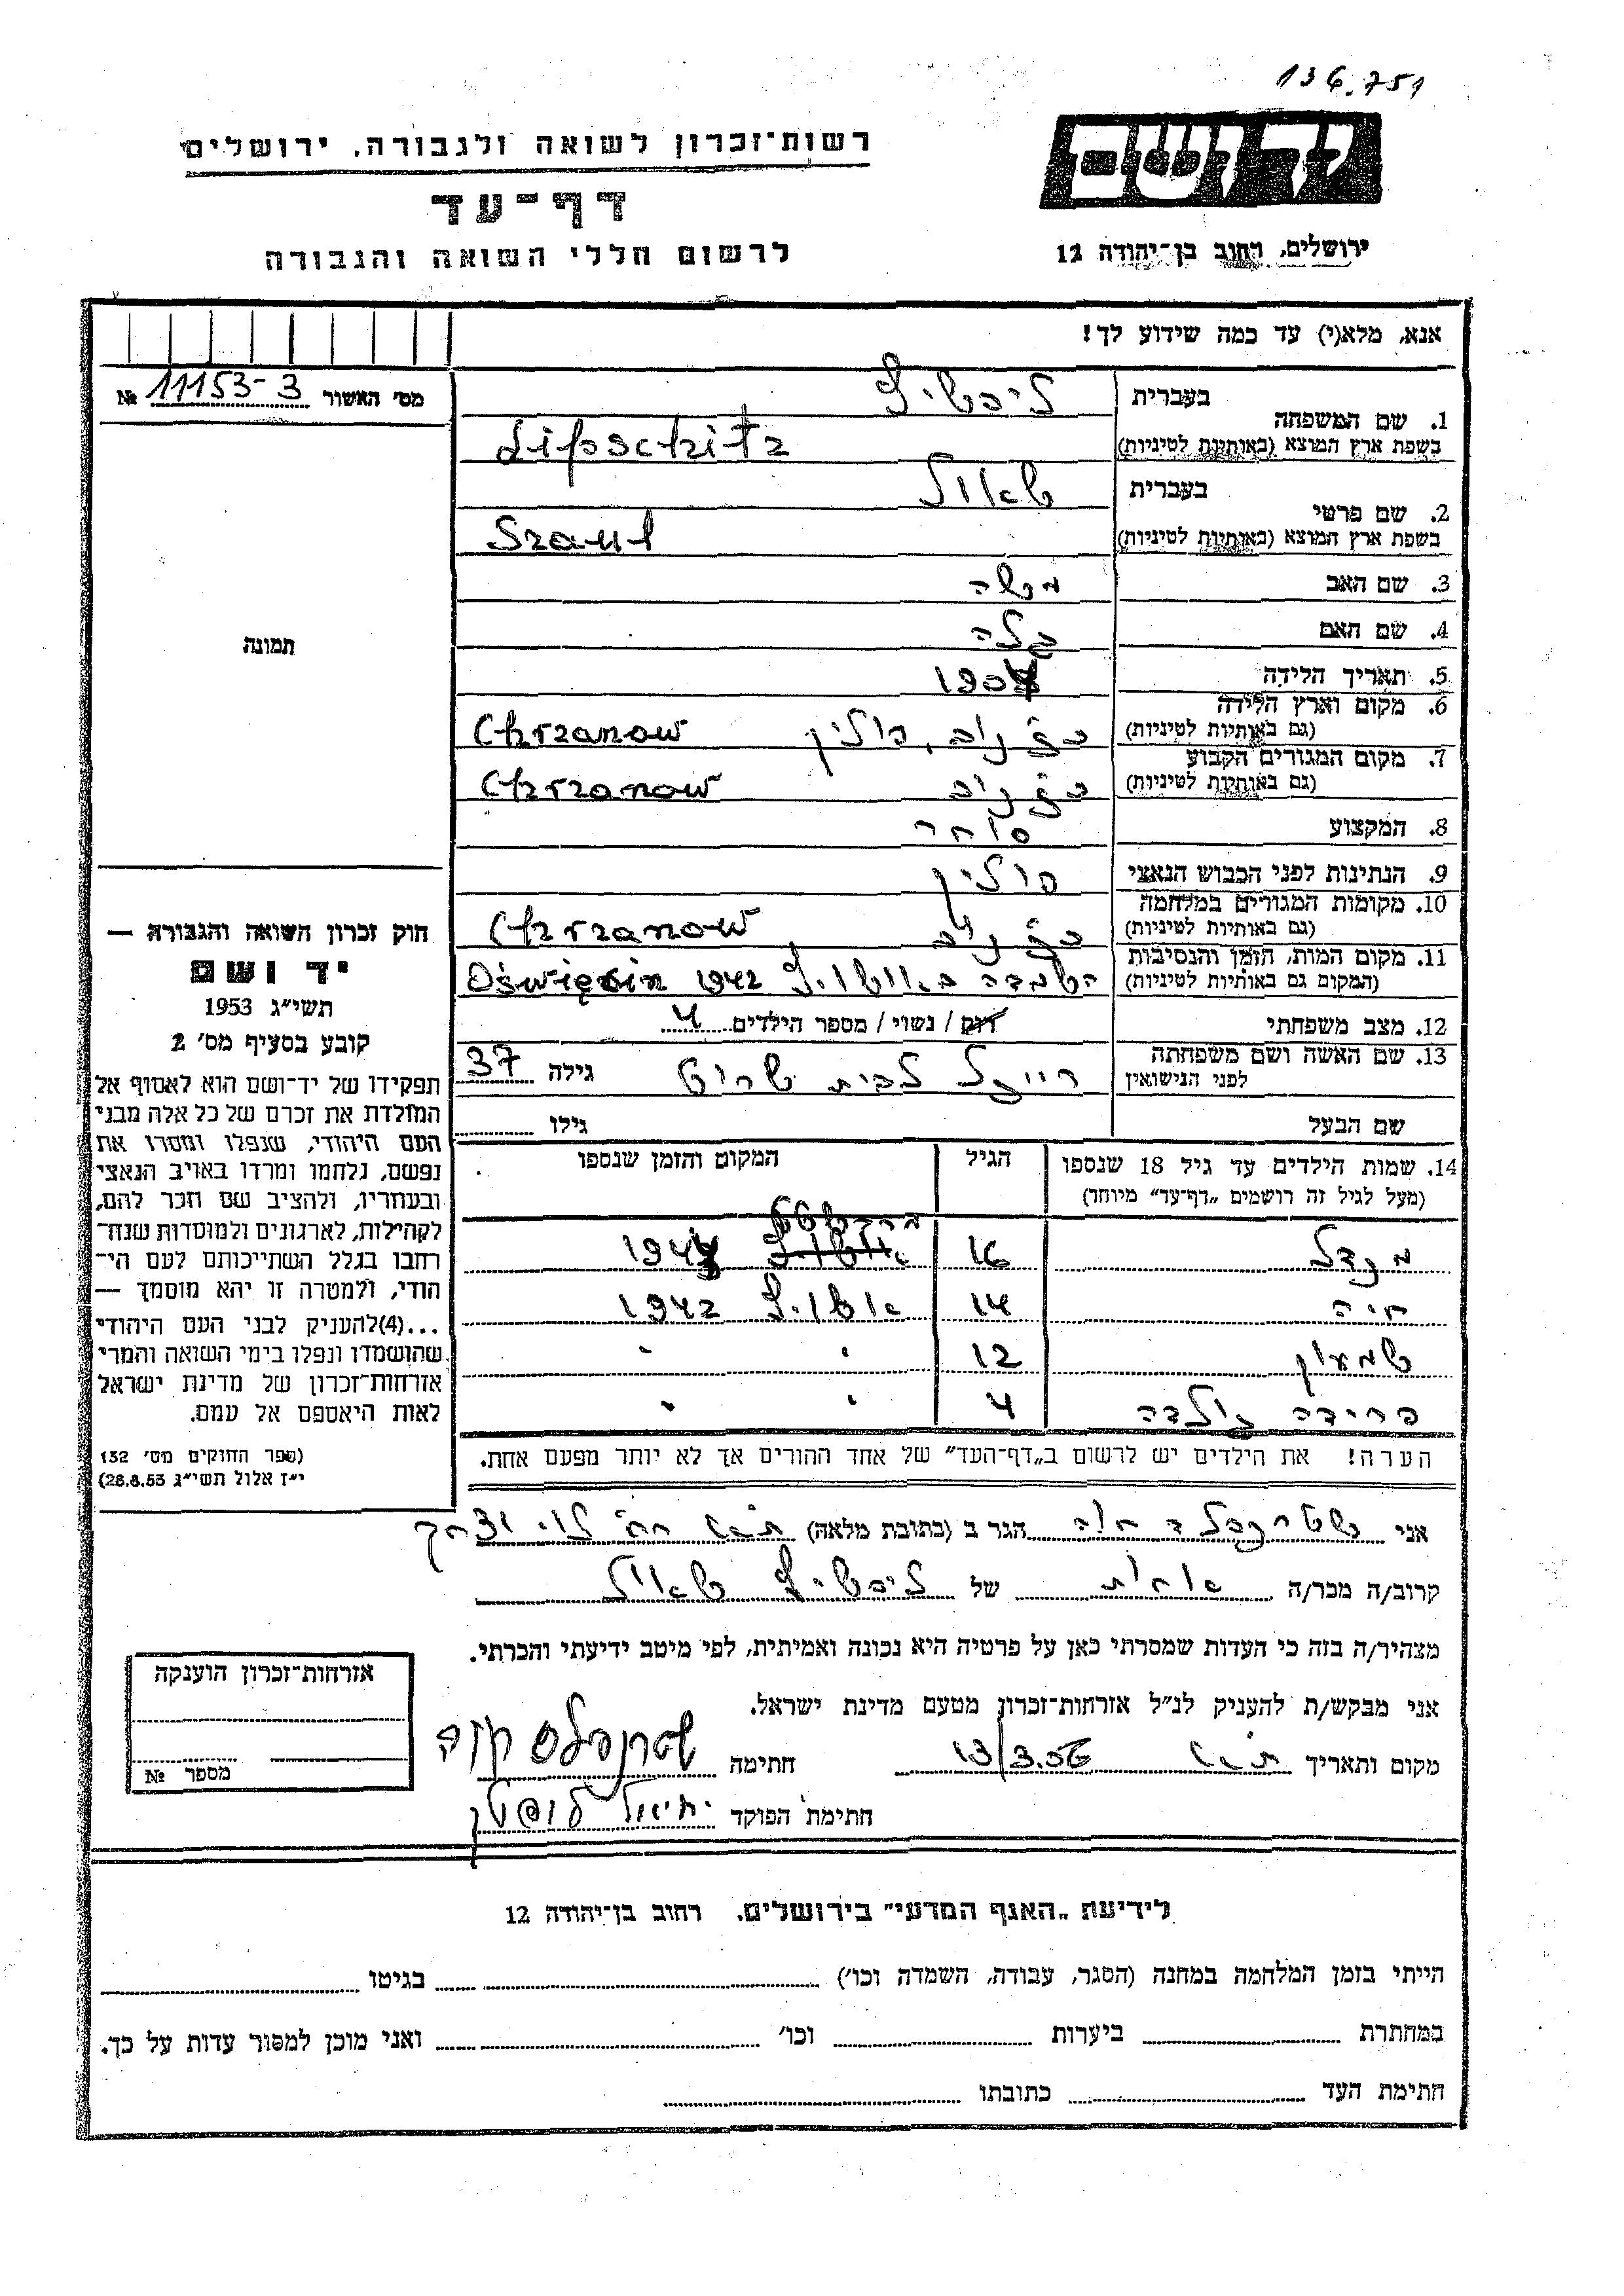 136.751
יד ושם
ירושלים, רחוב בן־יהודה 12
רשות־זכרון לשואה ולגבורה, ירושלים
דף־עד
לרשום חללי השואה והגבורה
אנא, מלא(י) עד כמה שידוע לך!
מס׳ האשור № 11153-3
תמונה
1. שם המשפחה בעברית ליפשיץ
בשפת ארץ המוצא (באותיות לטיניות) Lipschitz
2. שם פרטי בעברית שאול
בשפת ארץ המוצא (באותיות לטיניות) Szaul
3. שם האב משה
4. שם האם
5. תאריך הלידה 1904
6. מקום וארץ הלידה (גם באותיות לטיניות) פולין Chrzanow
7. מקום המגורים הקבוע (גם באותיות לטיניות) Chrzanow
8. המקצוע סוחר
9. הנתינות לפני הכבוש הנאצי פולין
10. מקומות המגורים במלחמה (גם באותיות לטיניות) Chrzanow
11. מקום המות, הזמן והנסיבות (המקום גם באותיות לטיניות) השמדה באושויץ 1942 Oświęcim
12. מצב משפחתי רוק / נשוי / מספר הילדים 4
13. שם האשה ושם משפחתה לפני הנישואין רייזל לבית גילה 37
שם הבעל גילו
14. שמות הילדים עד גיל 18 שנספו הגיל המקום והזמן שנספו
(מעל לגיל זה רושמים „דף־עד” מיוחד)
מנדל 16 אושויץ
חיה 14 אושויץ 1942
שמעון 12 " "
פרידה גולדה 4 " "
הערה! את הילדים יש לרשום ב„דף־העד” של אחד ההורים אך לא יותר מפעם אחת.
חוק זכרון השואה והגבורה —
יד ושם
תשי״ג 1953
קובע בסעיף מס׳ 2
תפקידו של יד־ושם הוא לאסוף אל
המולדת את זכרם של כל אלה מבני
העם היהודי, שנפלו ומסרו את
נפשם, נלחמו ומרדו באויב הנאצי
ובעוזריו, ולהציב שם וזכר להם,
לקהילות, לארגונים ולמוסדות שנח־
רבו בגלל השתייכותם לעם הי־
הודי, ולמטרה זו יהא מוסמך —
...(4)להעניק לבני העם היהודי
שהושמדו ונפלו בימי השואה והמרי
אזרחות־זכרון של מדינת ישראל
לאות היאספם אל עמם.
(ספר החוקים מס׳ 132
י״ז אלול תשי״ג 28.8.53)
אני חוה הגר ב (כתובת מלאה) ת״א רח׳ לוי יצחק
קרוב/ה מכר/ה אחות של ליפשיץ שאול
מצהיר/ה בזה כי העדות שמסרתי כאן על פרטיה היא נכונה ואמיתית, לפי מיטב ידיעתי והכרתי.
אני מבקש/ת להעניק לנ״ל אזרחות־זכרון מטעם מדינת ישראל.
מקום ותאריך ת״א 13/3.56 חתימה חוה
חתימת הפוקד
אזרחות־זכרון הוענקה
מספר №
לידיעת „האגף המדעי” בירושלים, רחוב בן־יהודה 12
הייתי בזמן המלחמה במחנה (הסגר, עבודה, השמדה וכו׳) בגיטו
במחתרת ביערות וכו׳ ואני מוכן למסור עדות על כך.
חתימת העד כתובתו